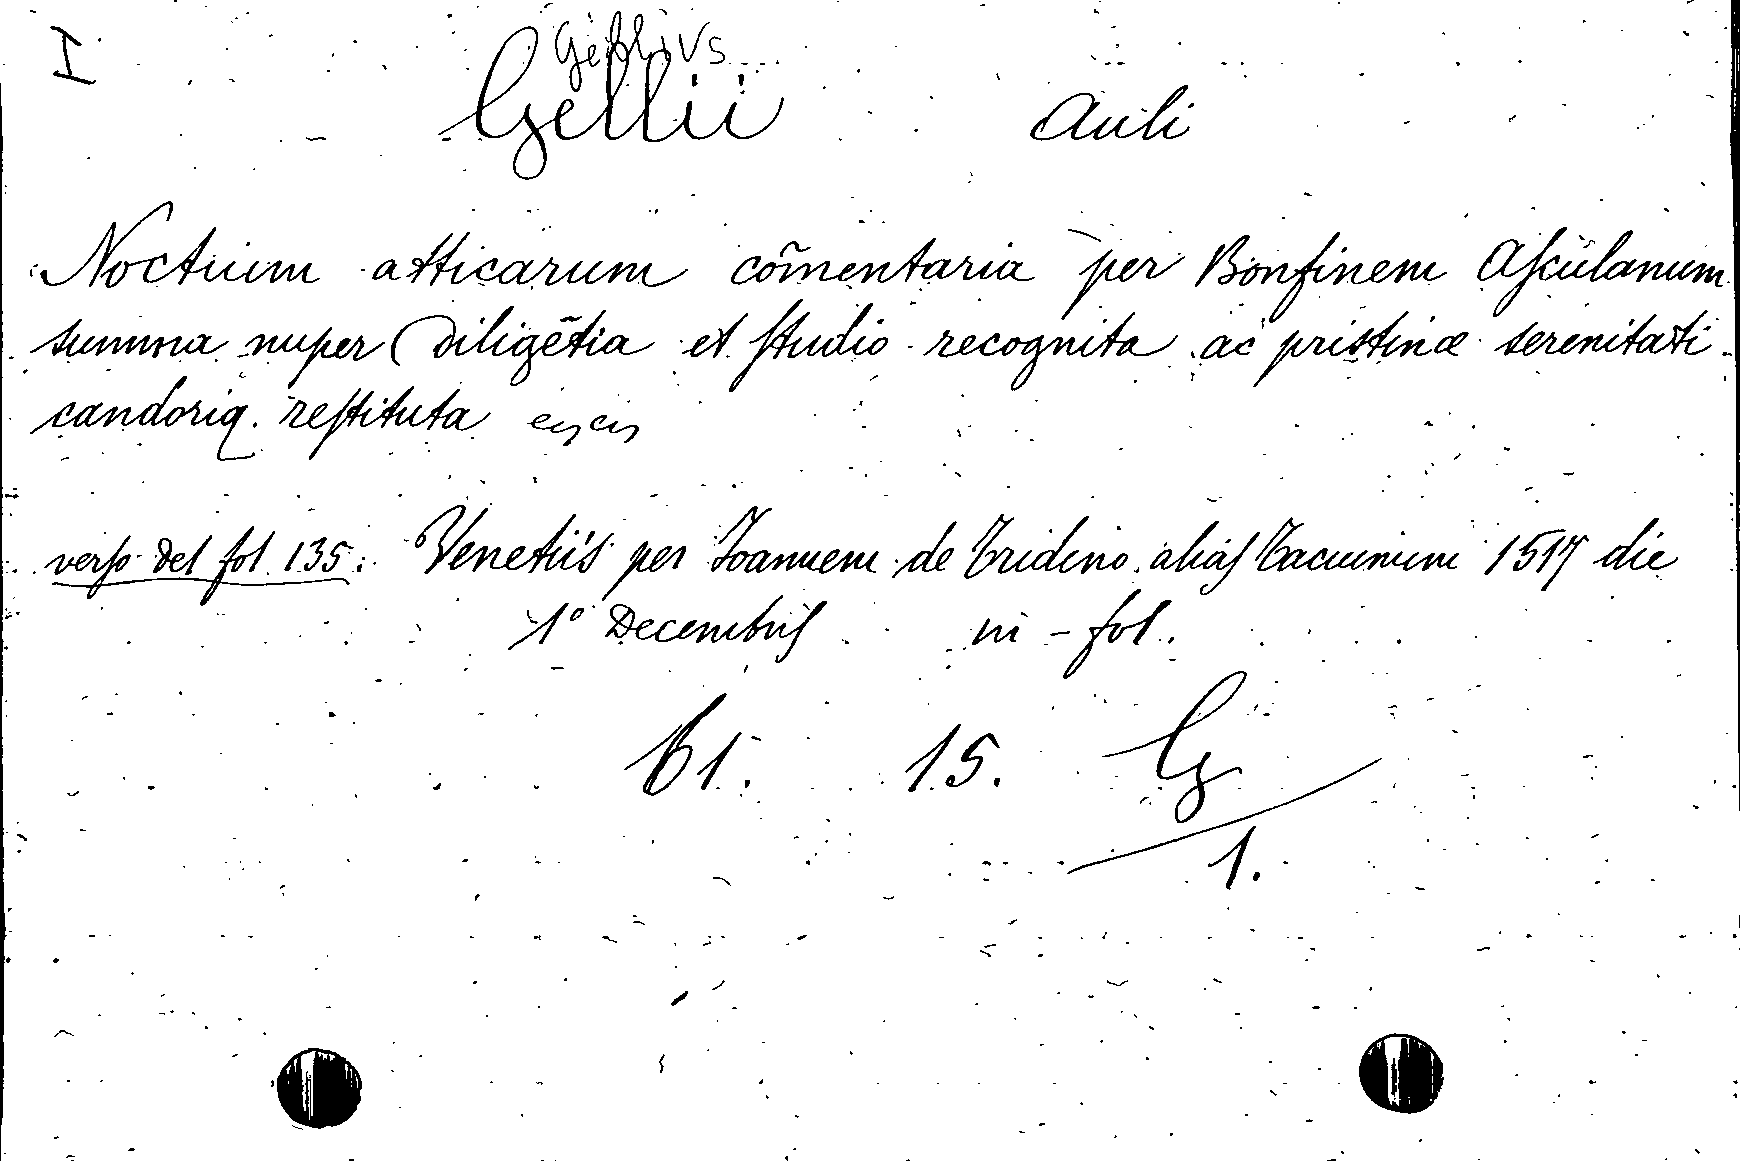 I
Gellivs
Gellii Auli
Noctium atticarum cōmentaria per Bonfinem Aſculanum
summa nuper diligētia et ſtudio recognita ac pristinæ serenitati
candoriq. reſtituta
verſo del fol. 135: Venetiis per Joannem de Tridino aliaſ Tacuinum 1517 die
1º Decembriſ in-fol.
61. 15. G
1.